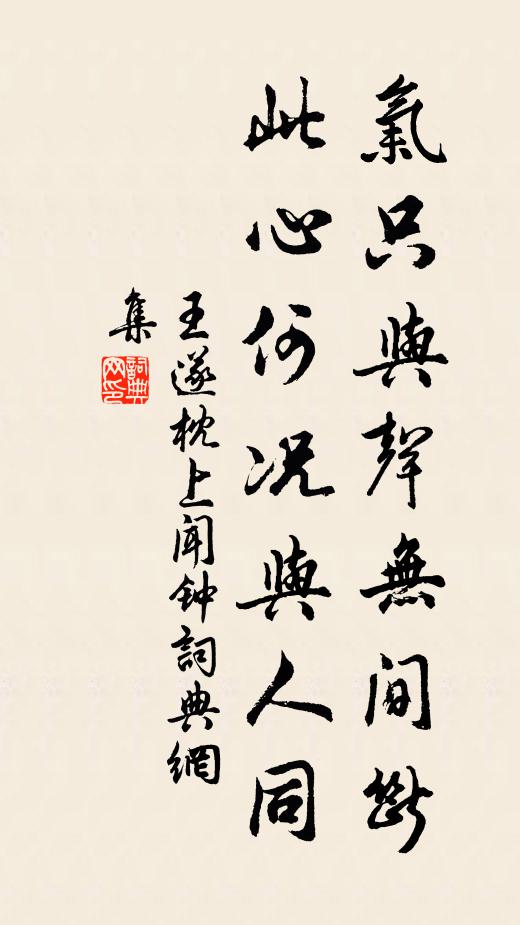 氣只與聲無間斷
此心何況與人同
王遂枕上闻钟詞典網
集
詞典网印